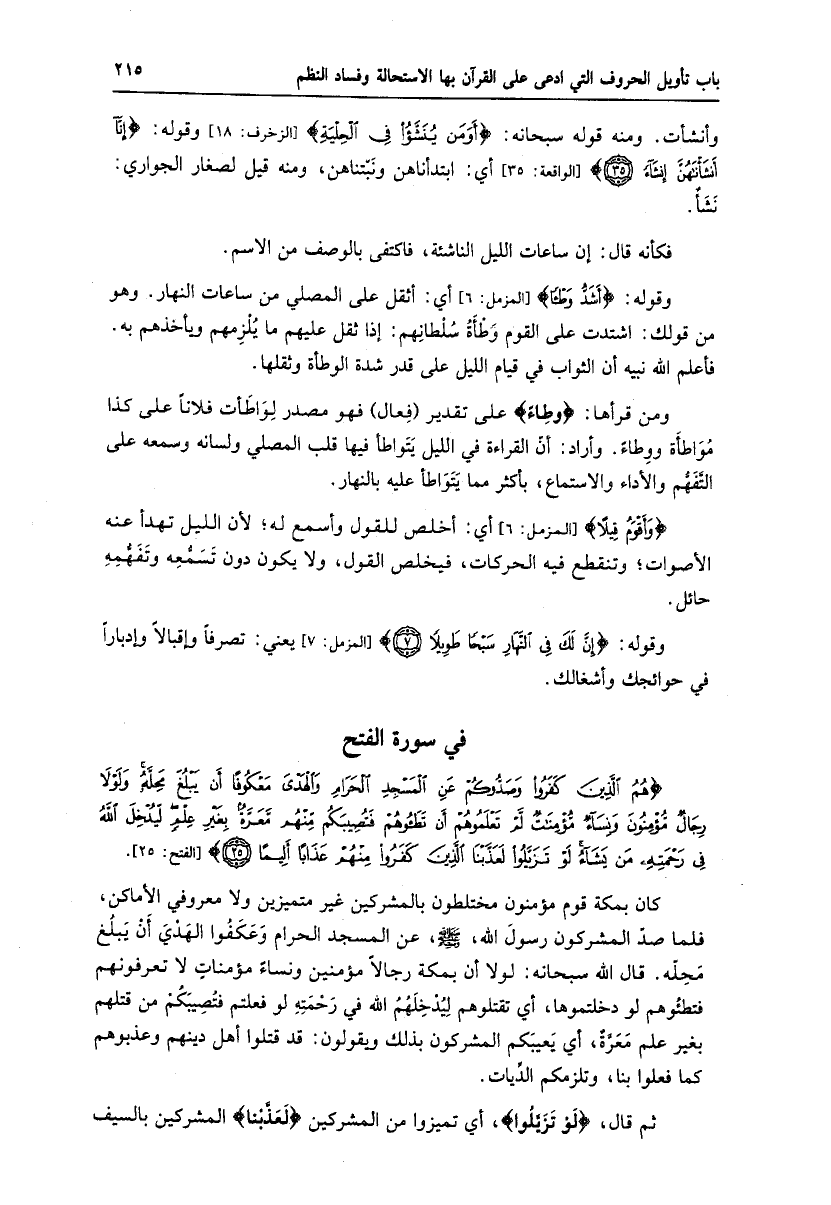 باب تأويل الحروف التي ادعى على القرآن بها الاستحالة وفساد النظم ٢١٥
وأنشأت. ومنه قوله سبحانه: ﴿أَوَمَن يُنَشَّؤُا۟ فِى ٱلْحِلْيَةِ﴾ [الزخرف: ١٨] وقوله: ﴿إِنَّآ
أَنشَأْنَٰهُنَّ إِنشَآءً ٣٥﴾ [الواقعة: ٣٥] أي: ابتدأناهن ونَبَّتناهن، ومنه قيل لصغار الجواري:
نَشَأٌ.
فكأنه قال: إن ساعات الليل الناشئة، فاكتفى بالوصف من الاسم.
وقوله: ﴿أَشَدُّ وَطْـًٔا﴾ [المزمل: ٦] أي: أثقل على المصلي من ساعات النهار. وهو
من قولك: اشتدت على القوم وَطْأَةُ سُلْطانِهم: إذا ثقل عليهم ما يُلْزِمهم ويأخذهم به.
فأعلم الله نبيه أن الثواب في قيام الليل على قدر شدة الوطأة وثقلها.
ومن قرأها: ﴿وِطاءً﴾ على تقدير (فِعال) فهو مصدر لِوَاطَأت فلاناً على كذا
مُوَاطأَة ووِطاءً. وأراد: أنّ القراءة في الليل يَتَواطأ فيها قلب المصلي ولسانه وسمعه على
التَّفَهُّم والأداء والاستماع، بأكثر مما يَتَوَاطأ عليه بالنهار.
﴿وَأَقْوَمُ قِيلًا﴾ [المزمل: ٦] أي: أخلص للقول وأسمع له؛ لأن الليل تهدأ عنه
الأصوات؛ وتنقطع فيه الحركات، فيخلص القول، ولا يكون دون تَسَمُّعِه وتَفَهُّمِهِ
حائل.
وقوله: ﴿إِنَّ لَكَ فِى ٱلنَّهَارِ سَبْحًا طَوِيلًا ٧﴾ [المزمل: ٧] يعني: تصرفاً وإقبالاً وإدباراً
في حوائجك وأشغالك.
في سورة الفتح
﴿هُمُ ٱلَّذِينَ كَفَرُوا۟ وَصَدُّوكُمْ عَنِ ٱلْمَسْجِدِ ٱلْحَرَامِ وَٱلْهَدْىَ مَعْكُوفًا أَن يَبْلُغَ مَحِلَّهُۥ وَلَوْلَا
رِجَالٌ مُّؤْمِنُونَ وَنِسَآءٌ مُّؤْمِنَٰتٌ لَّمْ تَعْلَمُوهُمْ أَن تَطَـُٔوهُمْ فَتُصِيبَكُم مِّنْهُم مَّعَرَّةٌۢ بِغَيْرِ عِلْمٍ لِّيُدْخِلَ ٱللَّهُ
فِى رَحْمَتِهِۦ مَن يَشَآءُ لَوْ تَزَيَّلُوا۟ لَعَذَّبْنَا ٱلَّذِينَ كَفَرُوا۟ مِنْهُمْ عَذَابًا أَلِيمًا ٢٥﴾ [الفتح: ٢٥].
كان بمكة قوم مؤمنون مختلطون بالمشركين غير متميزين ولا معروفي الأماكن،
فلما صدّ المشركون رسولَ الله، ﷺ، عن المسجد الحرام وَعَكَفُوا الهَدْيَ أَنْ يَبلُغ
مَحِلّه. قال الله سبحانه: لولا أن بمكة رجالاً مؤمنين ونساءً مؤمناتٍ لا تعرفونهم
فتطئُوهم لو دخلتموها، أي تقتلوهم لِيُدْخِلَهُمُ الله في رَحْمَتِهِ لو فعلتم فتُصِيبَكُمْ من قتلهم
بغير علم مَعَرَّةٌ، أي يَعيبَكم المشركون بذلك ويقولون: قد قتلوا أهل دينهم وعذبوهم
كما فعلوا بنا، وتلزمكم الدِّيات.
ثم قال، ﴿لَوْ تَزَيَّلُوا﴾، أي تميزوا من المشركين ﴿لَعَذَّبْنا﴾ المشركين بالسيف